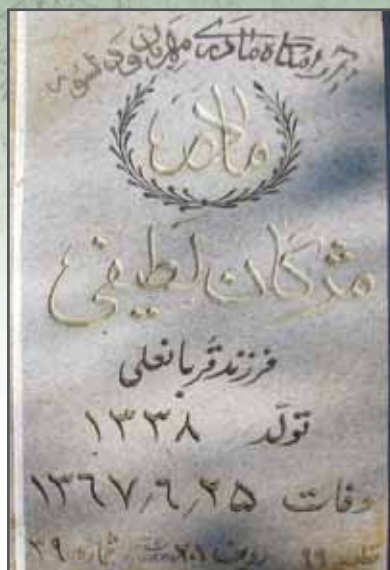 آرامگاه مادری مهربان و دلسوز
مادر
مژگان لطیفی
فرزند قربانعلی
تولد ۱۳۳۸
وفات ۱۳۶۷٫۶٫۲۵
قطعه ۹۹ ردیف شماره ۳۹